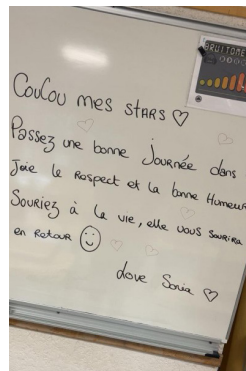 BRUITOMÈ
Coucou mes stars ♡
Passez une bonne Journée dans
Joie le Respect et la bonne Humeur
Souriez à la vie, elle vous sourira
en Retour ☺
love Sonia ♡